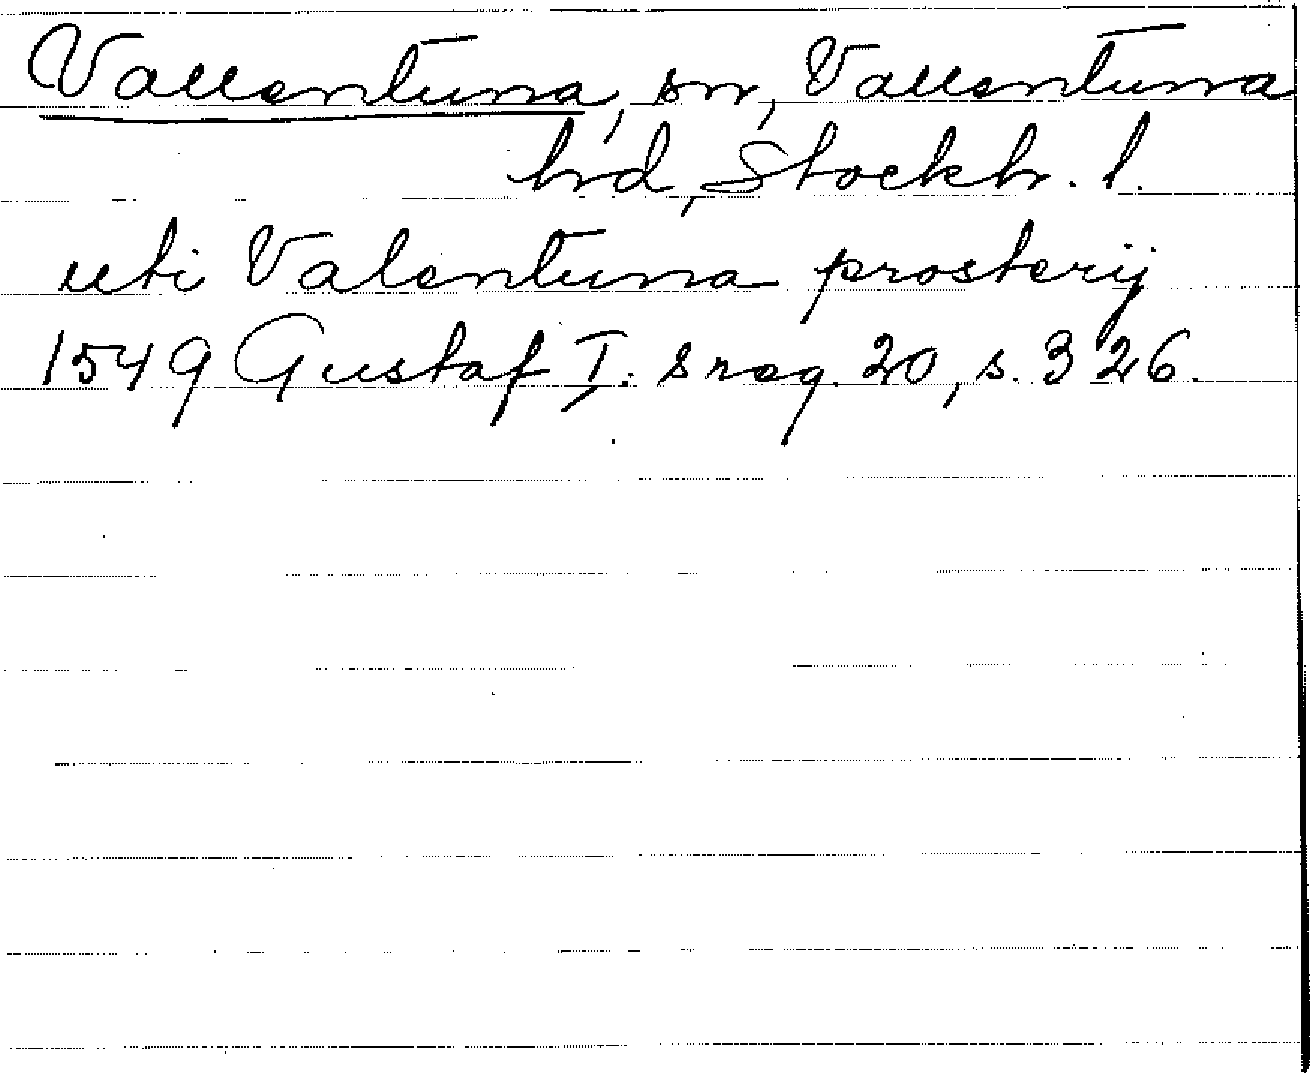 Vallentuna, sn, Vallentuna
hd, Stockh. l.
uti Valentuna prosterij
1549 Gustaf I:s reg. 20, s. 326.